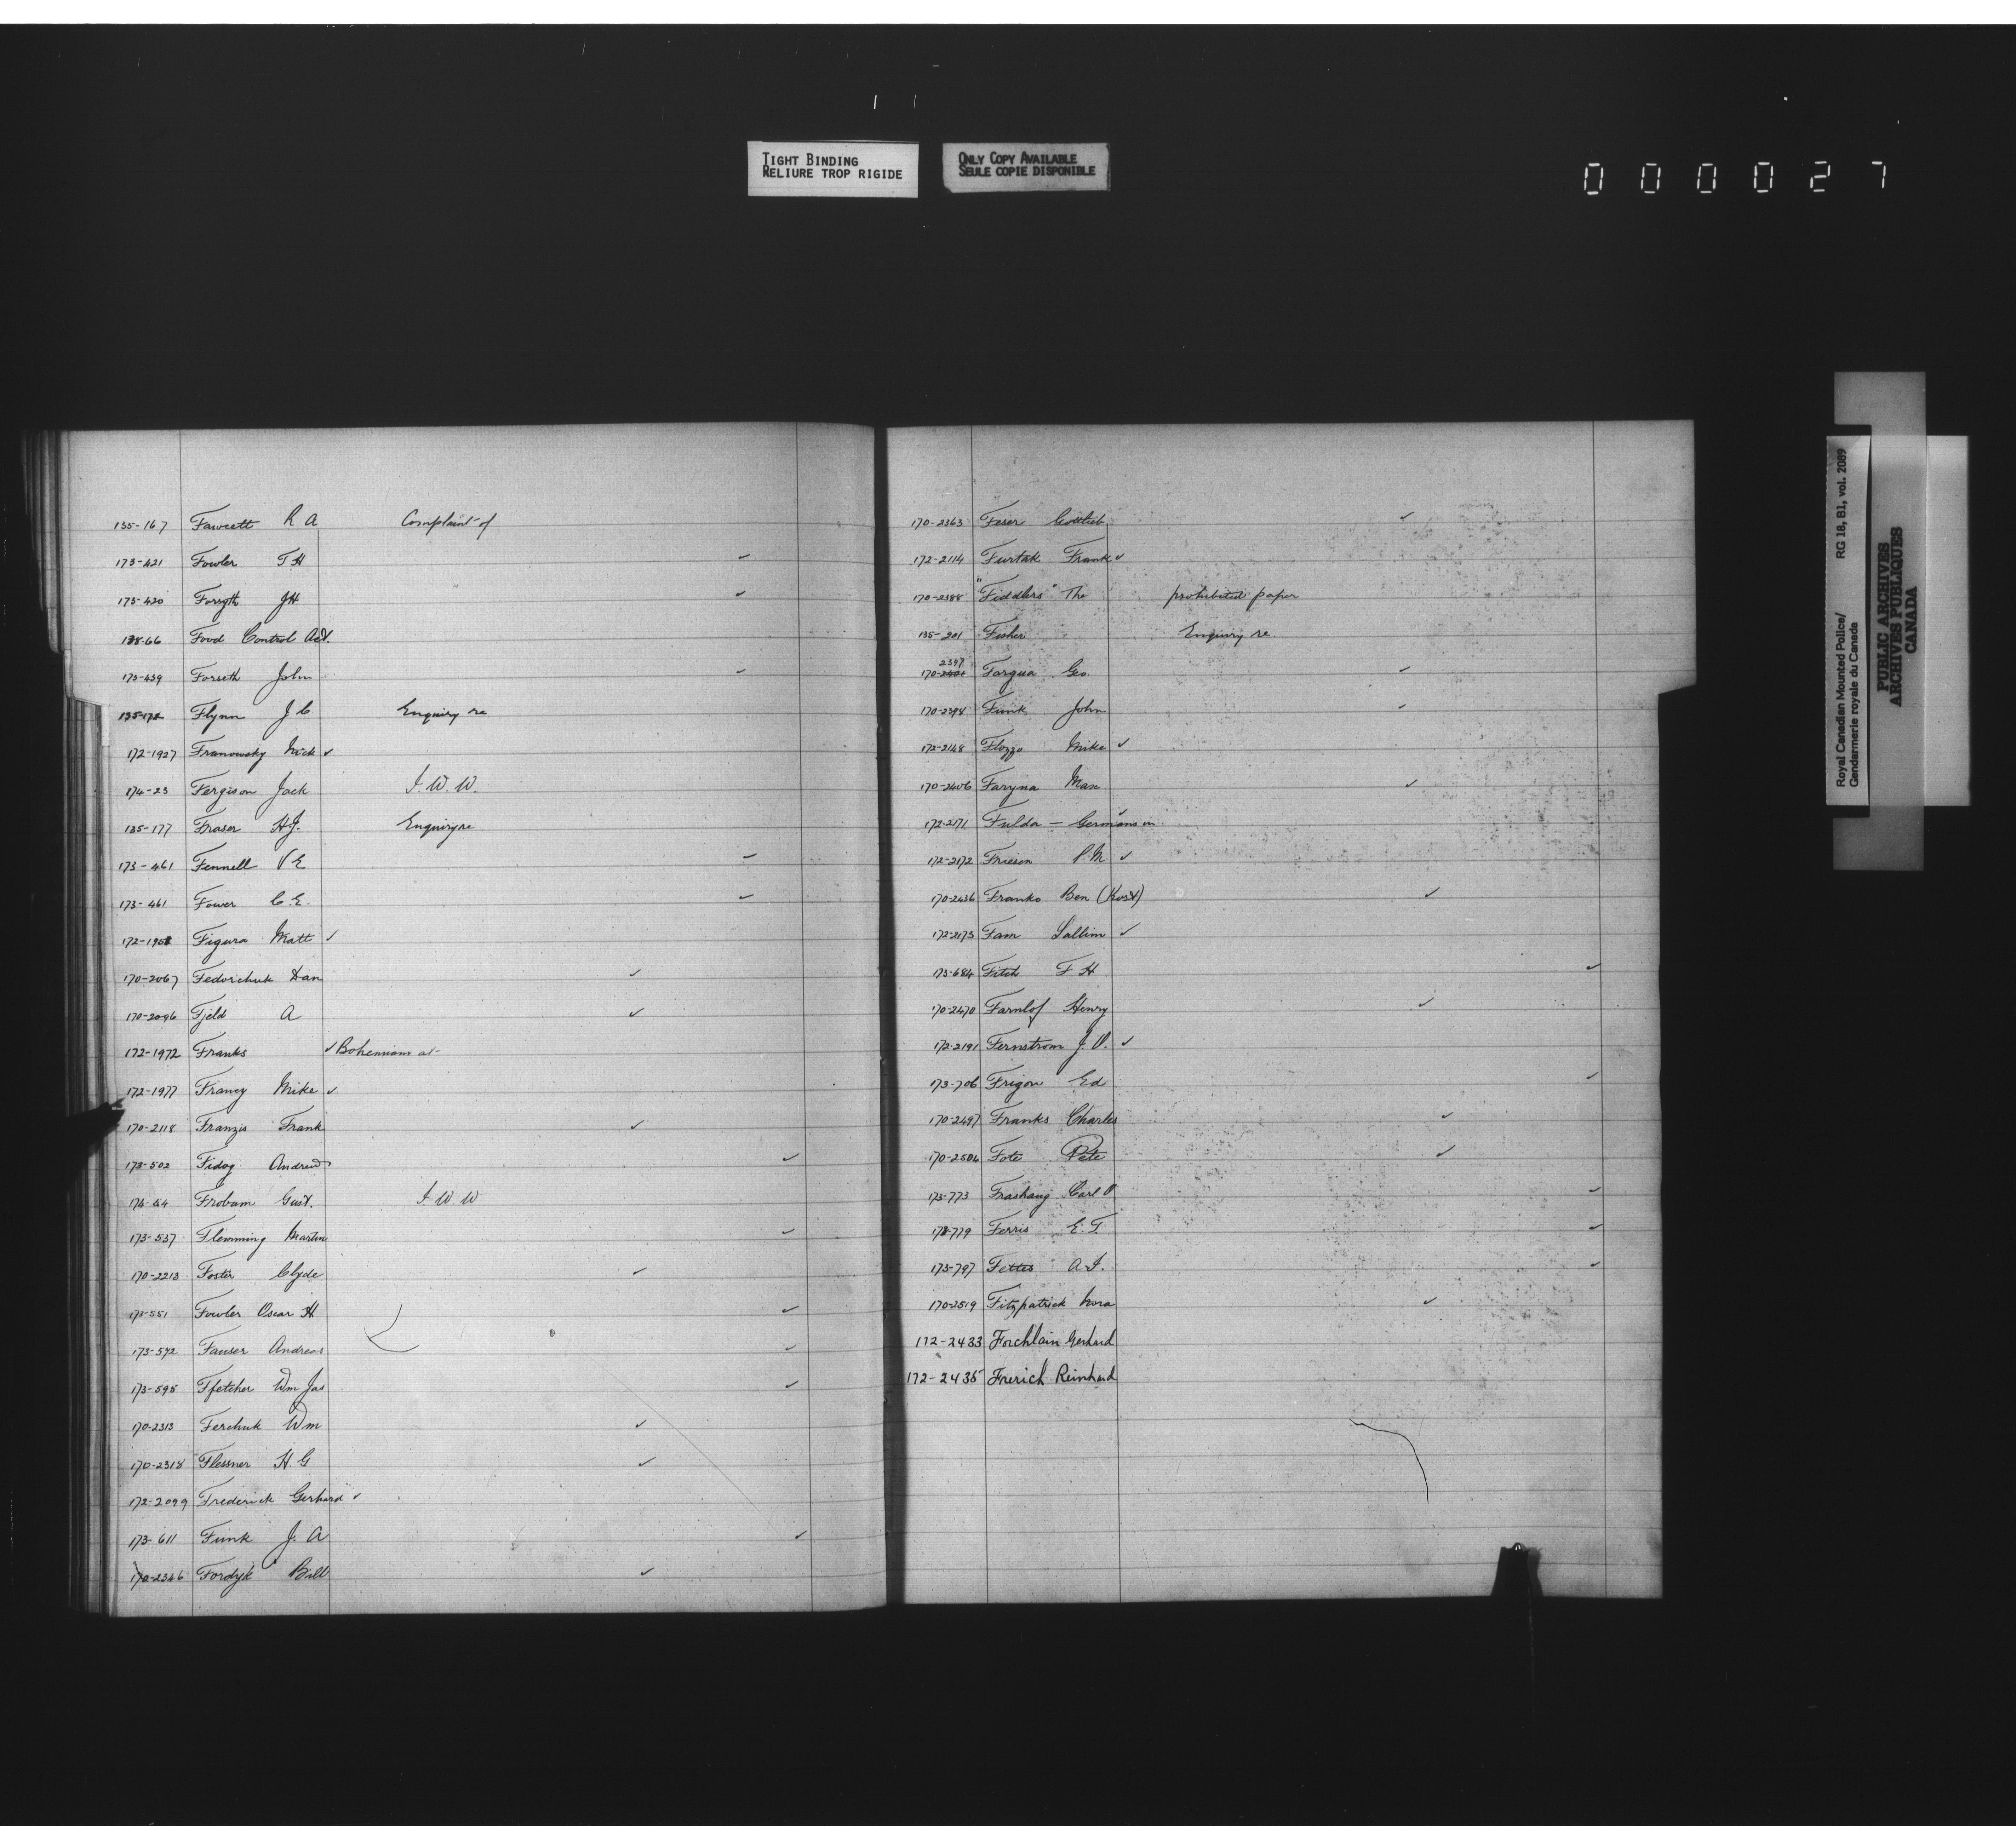 TIGHT BINDING
RELIURE TROP RIGIDE
ONLY COPY AVAILABLE
SEULE COPIE DISPONIBLE
000027
135-167 Fawcett R A Complaint of
173-421 Fowler T H ✓
173-420 Forsyth J H ✓
138-66 Food Control Act.
173-439 Forseth John ✓
135-172 Flynn J C Enquiry re
172-1927 Franowsky Nick ✓
174-23 Fergison Jack I. W. W.
135-177 Fraser H J. Enquiry re
173-461 Fennell V E ✓
173-461 Fower C. E. ✓
172-1958 Figura Matt ✓
170-2067 Fedorchuk Dan ✓
170-2096 Fjeld A ✓
172-1972 Franks ✓ Bohemians at
172-1977 Francy Mike ✓
170-2118 Franzis Frank ✓
173-502 Fidog Andrew ✓
174-54 Frobam Gust. I. W W
173-537 Flemming Martin ✓
170-2213 Foster Clyde ✓
173-551 Fowler Oscar H ✓
173-572 Fauser Andreas ✓
173-595 Ffetcher Wm Jas ✓
170-2313 Ferchuk Wm ✓
170-2318 Flessner H. G ✓
172-2099 Frederick Gerhard ✓
173-611 Funk J. A ✓
170-2346 Fordyk Bill ✓
170-2363 Feser Gottlieb ✓
172-2114 Furtak Frank ✓
170-2388 "Fiddlers" The prohibited paper
135-201 Fisher Enquiry re.
2397
170-2401 Forgua Geo. ✓
170-2398 Funk John ✓
172-2148 Flozzo Mike ✓
170-2406 Faryna Max ✓
172-2171 Fulda - Germans in ✓
172-2172 Friesen P. M ✓
170-2436 Franko Ben (Kost) ✓
172-2173 Fam Sallim ✓
173-684 Fitch F H ✓
170-2470 Farnlof Henry ✓
172-2191 Fernstrom J. O. ✓
173-706 Frigon Ed ✓
170-2497 Franks Charles ✓
170-2506 Fote Pete ✓
173-773 Frashaug Carl O ✓
173-779 Ferris E. T. ✓
173-797 Fettes A. F. ✓
170-2519 Fitzpatrick Nora ✓
172-2433 Forchlain Gerhard
172-2435 Frerich Reinhard
Royal Canadian Mounted Police/
Gendarmerie royale du Canada
RG 18, B1, vol. 2089
PUBLIC ARCHIVES
ARCHIVES PUBLIQUES
CANADA